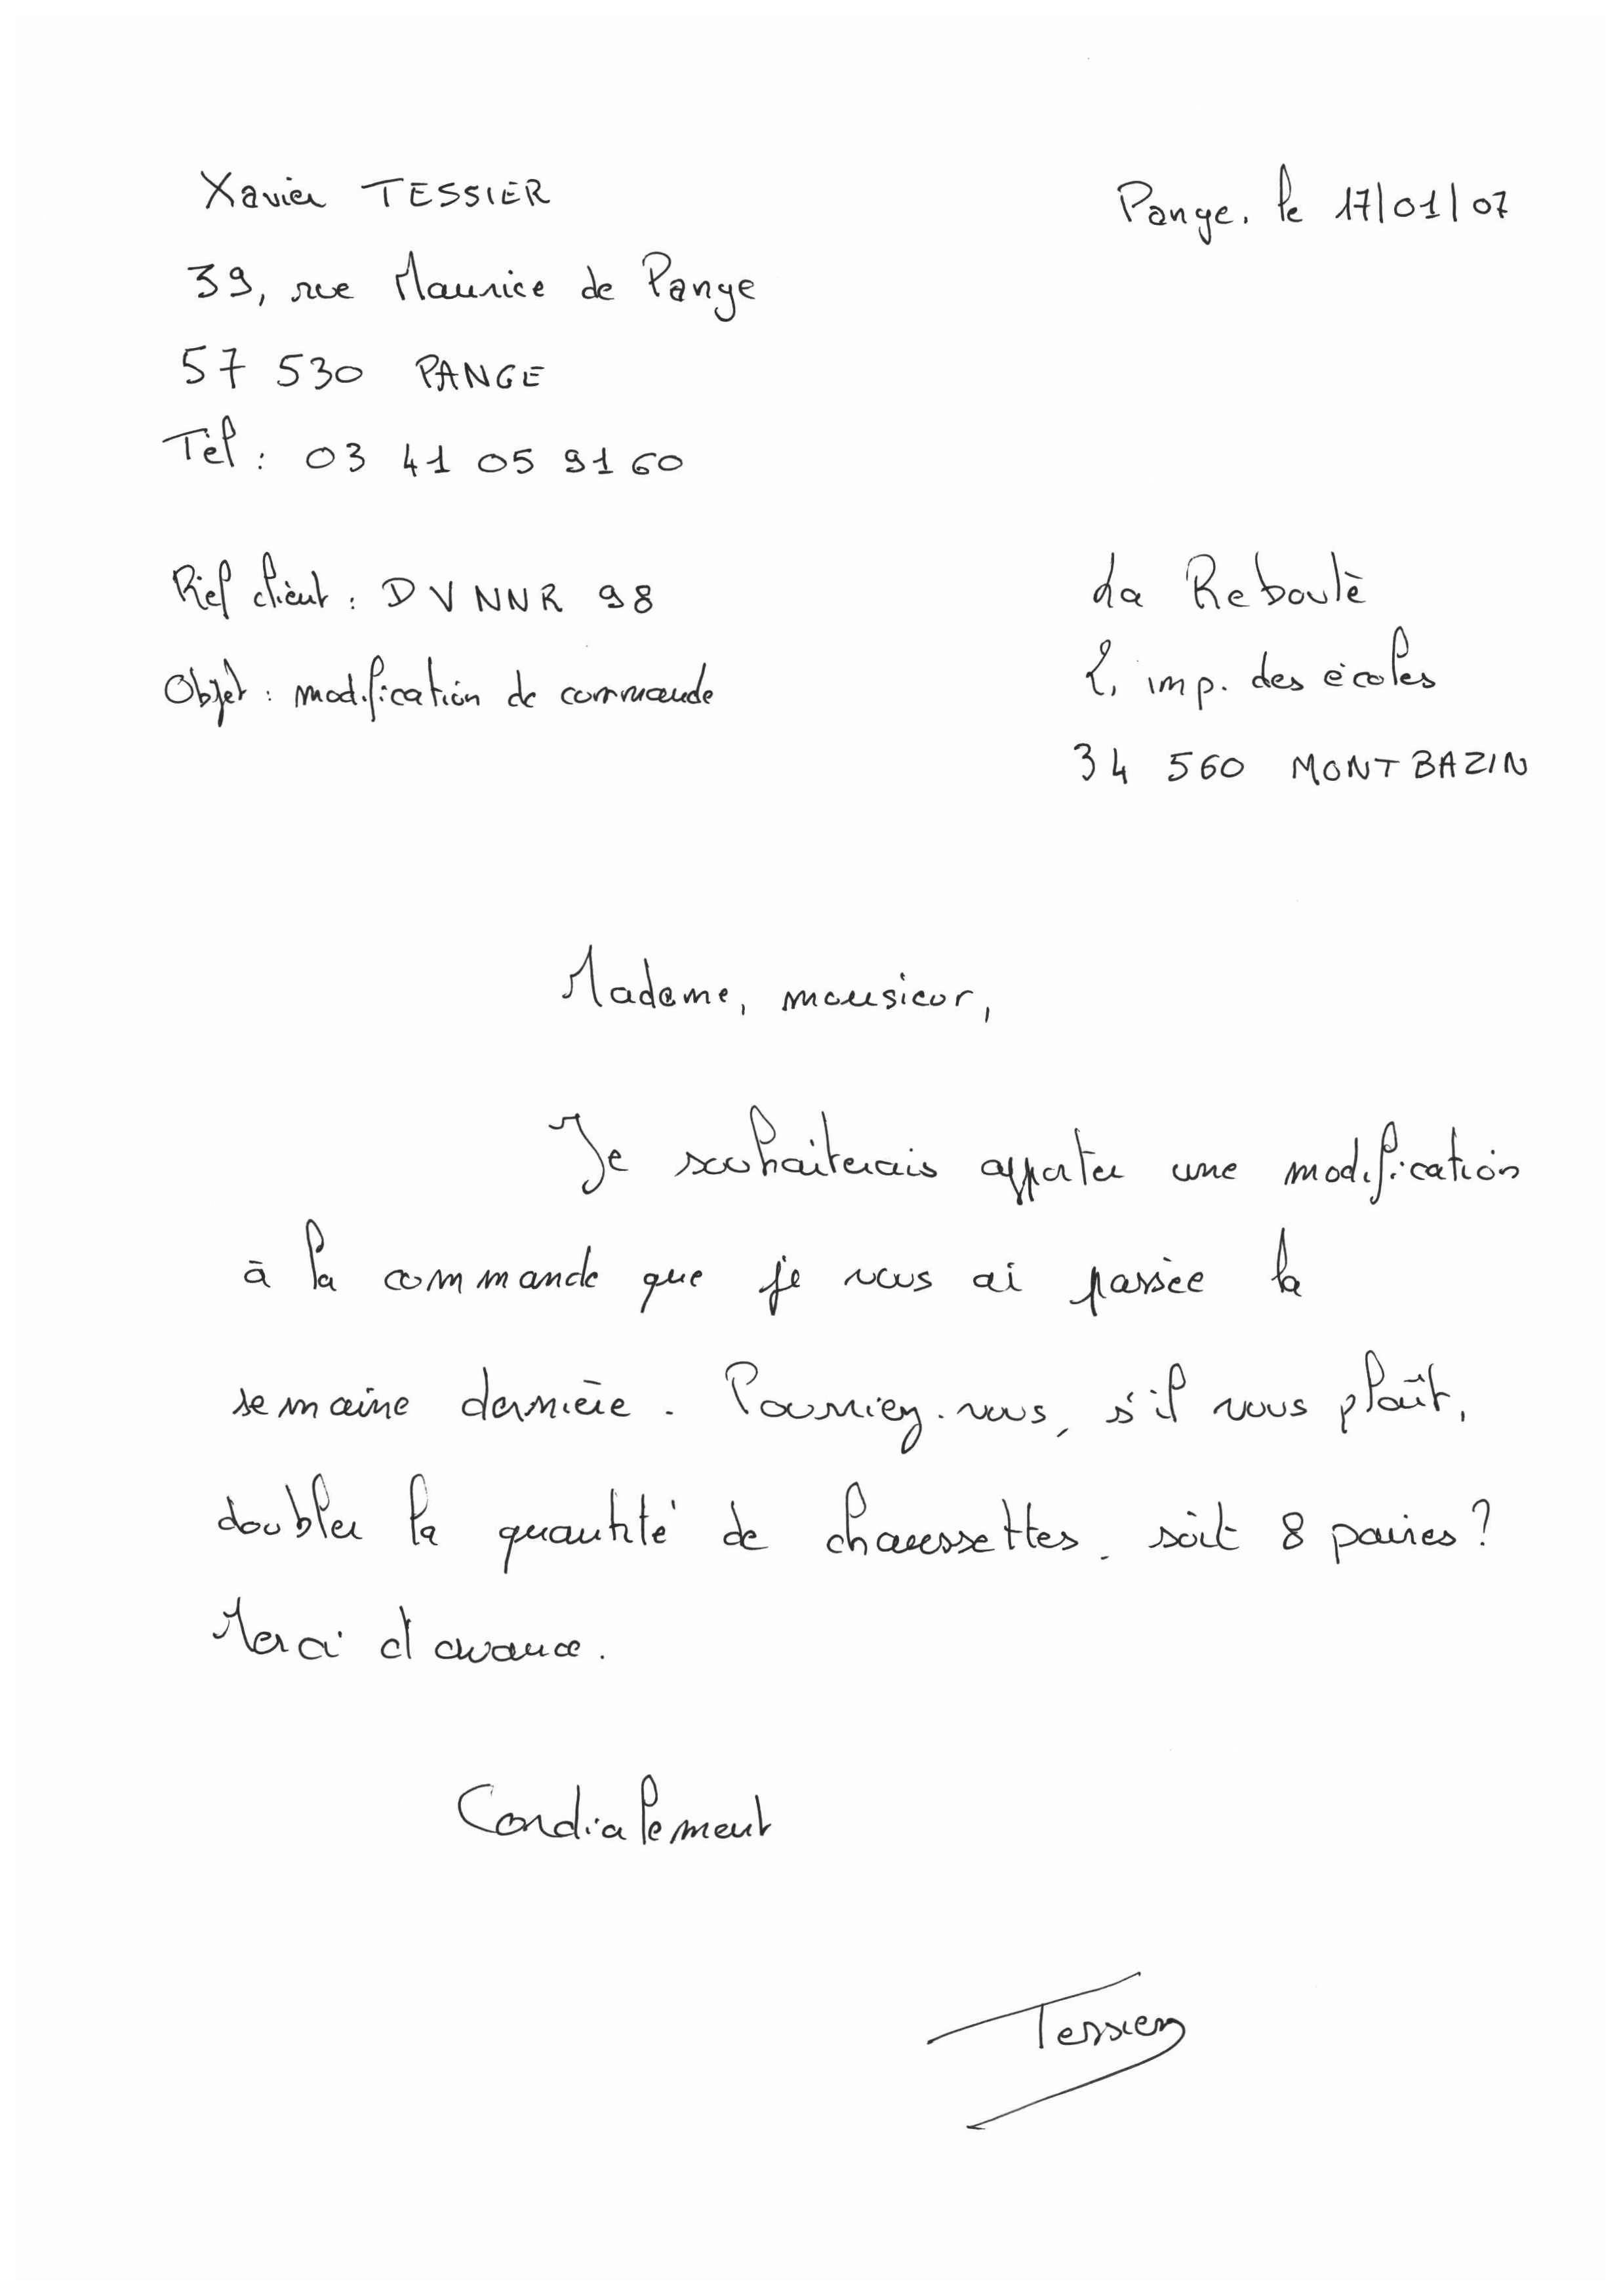 Xavier TESSIER
Pange, le 17/01/07
39, rue Maurice de Pange
57 530 PANGE
Tél : 03 41 05 91 60
Réf client : DVNNR 98
Objet : modification de commande
La Reboulé
2, imp. des écoles
34 560 MONTBAZIN
Madame, monsieur,
Je souhaiterais apporter une modification
à la commande que je vous ai passée la
semaine dernière. Pourriez-vous, s'il vous plaît,
doubler la quantité de chaussettes, soit 8 paires ?
Merci d'avance.
Cordialement
Tessier